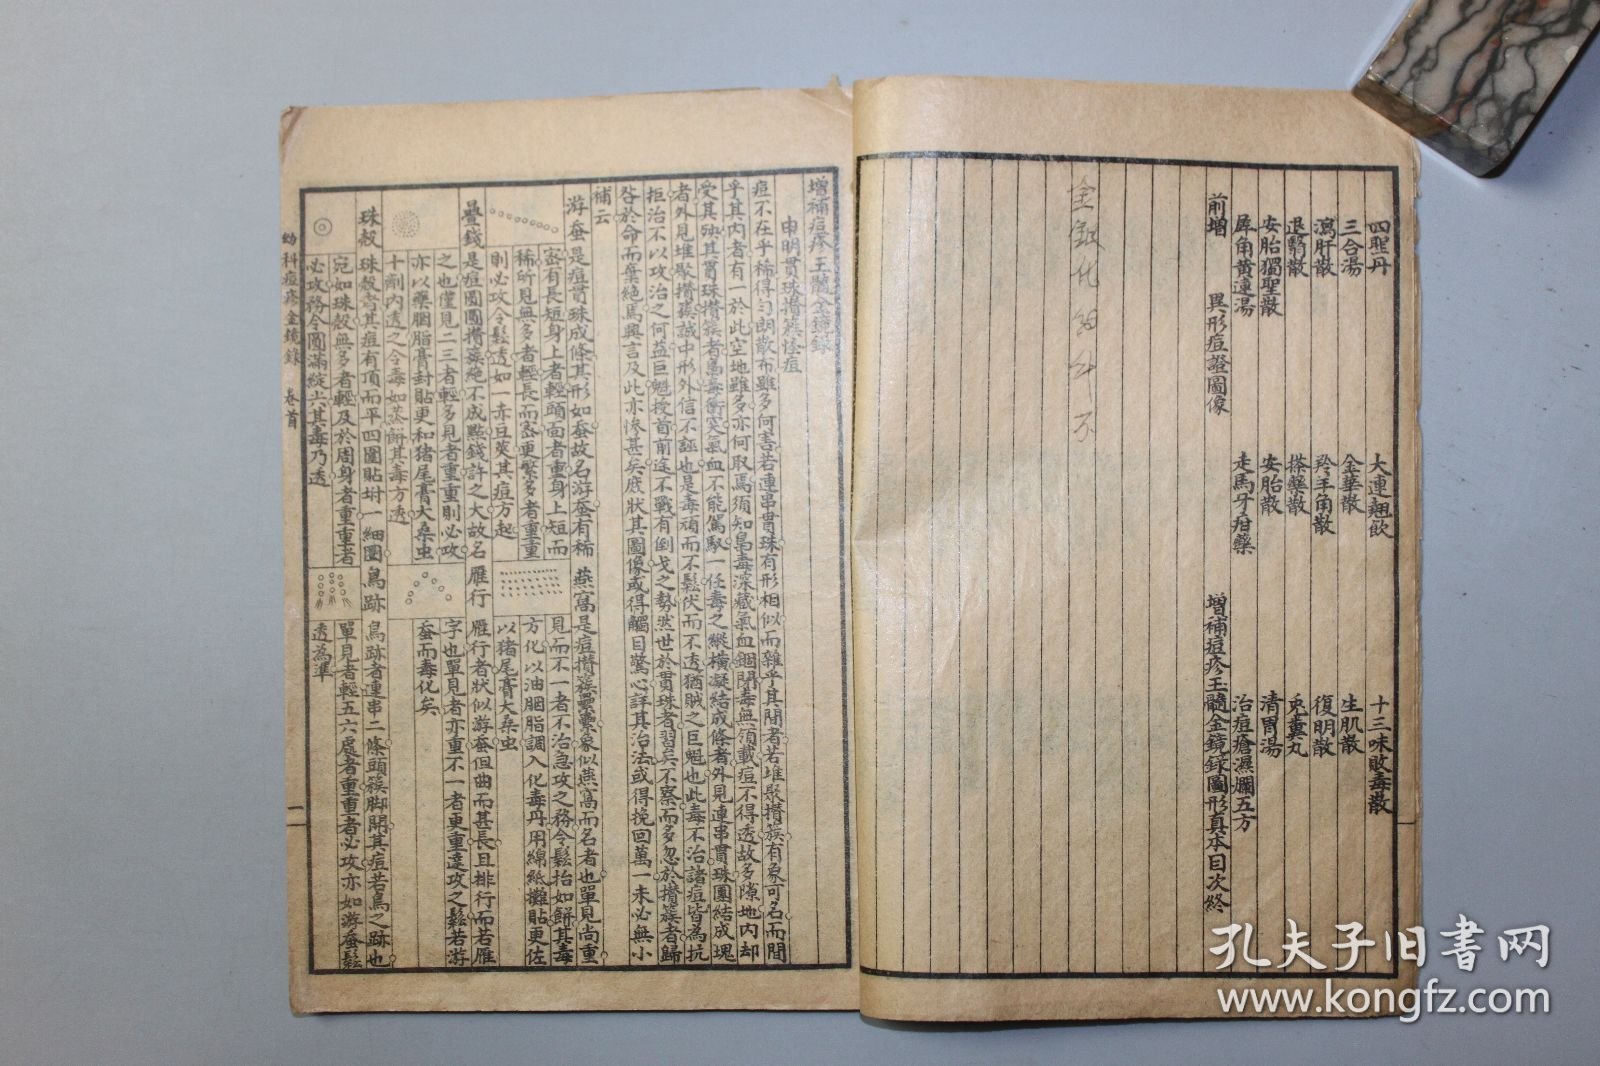 四聖丹 大連翹飲 十三味敗毒散
三合湯 金華散 生肌散
瀉肝散 羚羊角散 復明散
退翳散 搽藥散 兎糞丸
安胎獨聖散 安胎散 清胃湯
犀角黃連湯 走馬牙疳藥 治痘瘡濕爛五方
前增 異形痘證圖像 增補痘疹玉髓金鏡錄圖形真本目次終
增補痘疹玉髓金鏡錄
申明貫珠攢簇怪痘
痘不在乎稀得勻朗散布雖多何害若連串貫珠有形相似而雜乎其間者若堆聚攢簇有象可名而間
乎其內者有一於此空地雖多亦何取焉須知梟毒深藏氣血錮閉毒無領載痘不得透故多隙地內却
受其殃其貫珠攢簇者梟毒衝突氣血不能駕馭一任毒之縱橫凝結成條者外見連串貫珠團結成塊
者外見堆聚攢簇誠中形外信不誣也是毒頑而不鬆伏而不透猶賊之巨魁也此毒不治諸痘皆為抗
拒治不以攻治之何益巨魁授首前途不戰有倒戈之勢然世於貫珠者習矣不察而多忽於攢簇者歸
咎於命而棄絕焉興言及此亦慘甚矣庶狀其圖像或得觸目驚心詳其治法或得挽回萬一未必無小
補云
游蚕 是痘貫珠成條其形如蚕故名游蚕有稀
密有長短身上者輕頭面者重身上短而
稀所見無多者輕長而密更繁多者重重
則必攻令鬆透如一赤豆莢其痘方起
疊錢 是痘團圞攢簇絕不成點錢許之大故名
之也僅見二三者輕多見者重重則必攻
亦以藥胭脂膏封貼更和猪尾膏大桑虫
十劑內透之令毒如蒸餅其毒方透
珠殼 珠殼者其痘有頂而平四圍貼坿一細圈
宛如珠殼無多者輕及於周身者重重者
必攻務令圓滿綻凸其毒乃透
燕窩 是痘攢簇纍纍象似燕窩而名者也單見尚重
見而不一者不治急攻之務令鬆抬如餅其毒
方化以油胭脂調入化毒丹用綿紙攤貼更佐
以猪尾膏大桑虫
雁行 雁行者狀似游蚕但曲而甚長且排行而若雁
字也單見者亦重不一者更重達攻之鬆若游
蚕而毒化矣
鳥跡 鳥跡者連串二條頭簇脚開其痘若鳥之跡也
單見者輕五六處者重重者必攻亦如游蚕鬆
透為準
幼科痘疹金鏡錄 卷首 一
孔夫子旧书网
www.kongfz.com